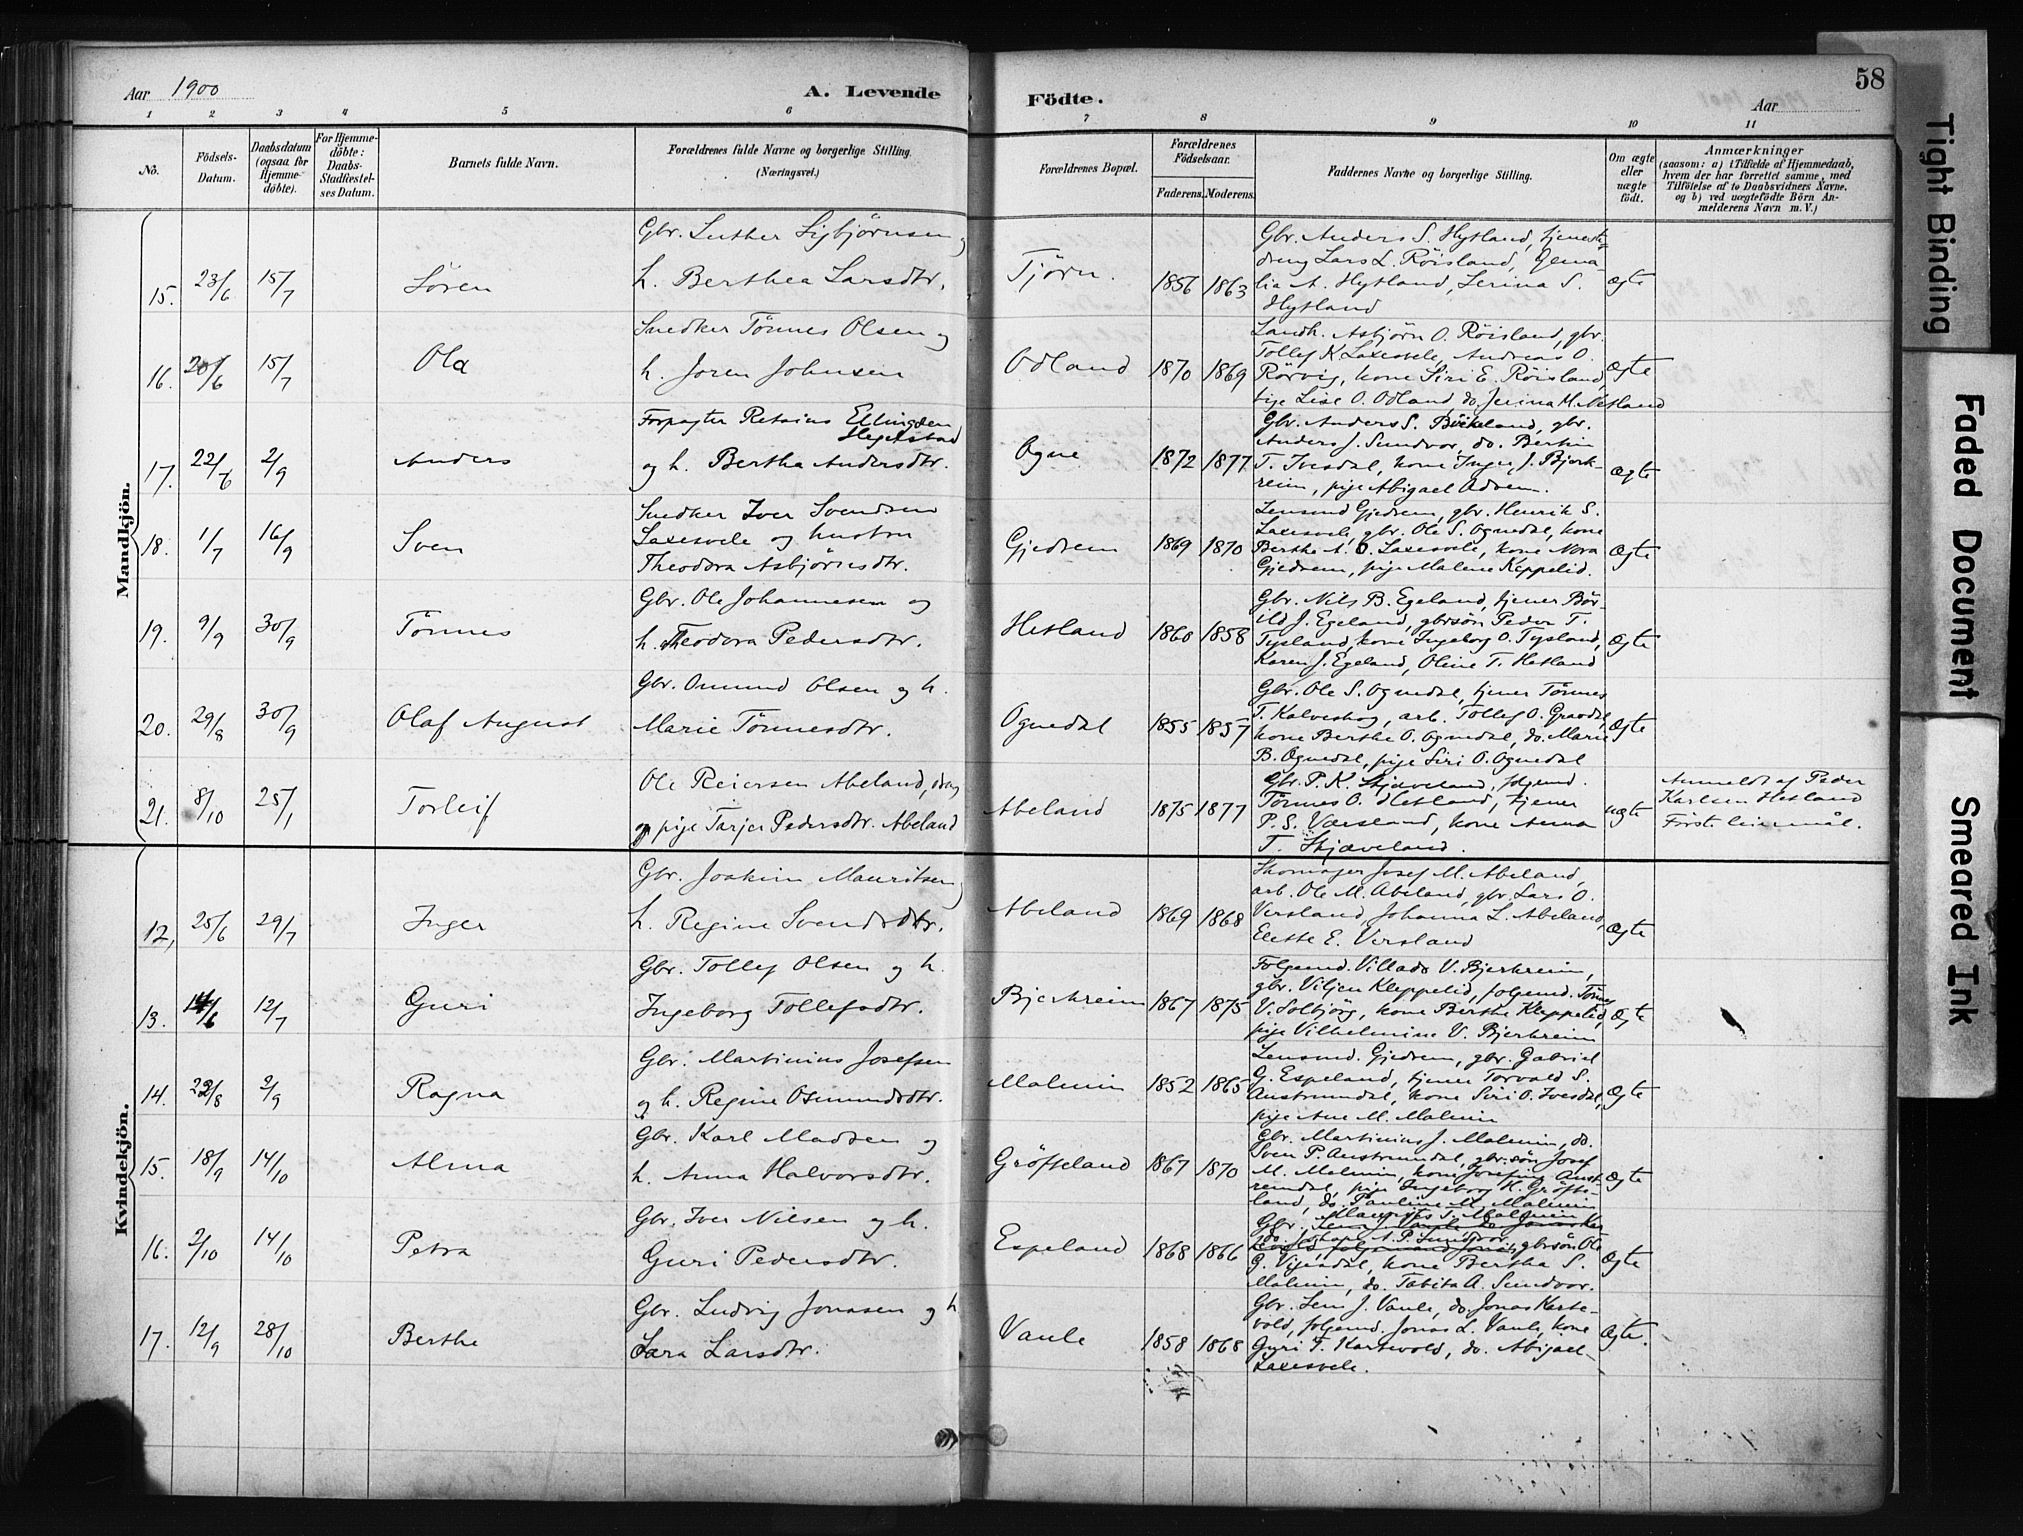 Aar 1900
A. Levende Födte.
Aar
58
1 2 3 4 5 6 7 8 9 10 11
No.
Födsels-Datum.
Daabsdatum (ogsaa for Hjemme-döbte).
For Hjemme-döbte: Daabs-Stadfæstel-ses Datum.
Barnets fulde Navn.
Forældrenes fulde Navne og borgerlige Stilling. (Næringsvei.)
Forældrenes Bopæl.
Forældrenes Födselsaar.
Faderens. Moderens.
Faddernes Navne og borgerlige Stilling.
Om ægte eller uægte födt.
Anmærkninger
(saasom: a) i Tilfælde af Hjemmedaab,
hvem der har forrettet samme, med
Tilföielse af to Daabsvidners Navne,
og b) ved uægtefödte Börn An-
melderens Navn m. V.)
Mandkjön.
15. 23/6 15/7 Sören
Gbr. Luther Sigbjörnsen og
h. Berthea Larsdtr.
Tjörn. 1856 1863
Gbr. Anders S. Hytland, tjeneste-
dreng Lars L. Röisland,
lia A. Hytland, Serina S.
Hytland
ægte
16. 20/6 15/7 Ola
Snedker Tönnes Olsen og
h. Joren Johnsen
Odland 1870 1869
Landh. Asbjörn O. Röisland, gbr.
Tollef K Laxesvele, Andreas O.
Rörvig, kone Siri E. Röisland,
pige Lise O. Odland, do. Jerina M. Netland
ægte
17. 22/6 2/9 Anders
Forpagter Retsius Ellingsen
Hegelstad
og h. Bertha Andersdtr.
Ogne 1872 1877
Gbr. Anders S. Birkeland, gbr.
Anders J. Sundvor, do. Bertin
T. Ivesdal, kone Inger J. Bjerk-
reim, pige Abigael
ægte
18. 1/7 16/9 Sven
Snedker Iver Svendsen
Laxesvele og hustru
Theodora Asbjörnsdtr.
Gjedrem 1869 1870
Lensmd Gjedrem, gbr. Henrik S.
Laxesvele, gbr. Ole S. Ognedal, kone
Berthe A. O. Laxesvele, kone Nora
Gjedrem, pige Malene Keppelid.
ægte
19. 9/9 30/9 Tönnes
Gbr. Ole Johannesen og
h. Theodora Pedersdtr.
Hetland 1860 1858
Gbr. Nils B. Egeland, tjener Bör-
ild J. Egeland, gbrsön Peder T.
Tysland, kone Ingeborg O. Tysland,
Karen J. Egeland, Oline T. Hetland
ægte
20. 29/8 30/9 Olaf August
Gbr. Omund Olsen og h.
Marie Tönnesdtr.
Ognedal 1855 1857
Gbr. Ole S. Ognedal, tjener Tönnes
T. Kalveskog, arb. Tollef O. Graadal,
kone Berthe O. Ognedal, do. Marie
B. Ognedal, pige Siri O. Ognedal
ægte
21. 8/10 25/1 Torleif
Ole Reiersen Abeland, dreng
og pige Tarjer Pedersdtr. Abeland
Abeland 1875 1877
Gbr. P. K. Skjæveland, folgemd.
Tönnes O. Hetland, tjener
P. S. Værsland, kone Anna
T. Skjæveland.
uægte
Anmeldt af Peder
Karlsen Hetland
Först. leiermål.
Kvindekjön.
12, 25/6 29/7 Inger
Gbr. Joakim Mauritsen og
h. Regine Svendsdtr.
Abeland 1869 1868
Skomager Josef M. Abeland,
arb. Ole M. Abeland, gbr Lars O.
Versland, Johanna L. Abeland,
Elette E. Versland
ægte
13. 14/6 12/7 Guri
Gbr. Tollef Olsen og h.
Ingeborg Tollefsdtr.
Bjerkreim 1867 1875
Folgemd. Villads V. Bjerkreim,
gbr. Viljen Kleppelid, folgemd. Tönnes
V. Solbjörg, kone Berthe Kleppelid,
pige Vilhelmine V. Bjerkreim
ægte
14. 22/8 2/9 Ragna
Gbr. Martinius Josefsen
og h. Regine Osmundsdtr.
Malmin 1852 1865
Lensmd. Gjedrem, gbr. Gabriel
G. Espeland, tjener Torvald S.
Austrumdal, kone Siri O. Ivesdal,
pige Ane M. Malmin
ægte
15. 18/9 14/10 Alma
Gbr. Karl Madsen og
h. Anna Halvorsdtr.
Gröfteland 1867 1870
Gbr. Martinius J. Malmin, do.
Sven P. Austrumdal, gbr.sön Josef
M. Malmin, kone Josefine Aust-
remdal, pige Ingeborg K. Gröfte-
land, do. Pauline M. Malmin
ægte
16. 2/10 14/10 Petra
Gbr. Iver Nilsen og h.
Guri Pedersdtr.
Espeland 1868 1866
Maurits S. Malmin
Gbr. Sem J. Vaule do Jonas Kar
do. A. P. Sundvor
gbrsön Ole
G. Vinsdal, kone Bertha S.
Malmin, do. Tabita A. Sundvor.
ægte
17. 12/9 28/10 Berthe
Gbr. Ludvig Jonasen og h
Sara Larsdtr.
Vaule 1858 1868
Gbr. Sem J. Vaule, do. Jonas Karte-
vold, folgemd. Jonas L. Vaule, kone
Guri T. Kartevold, do. Abigael
Laxesvele.
ægte.
Tight Binding
Faded Document
Smeared Ink